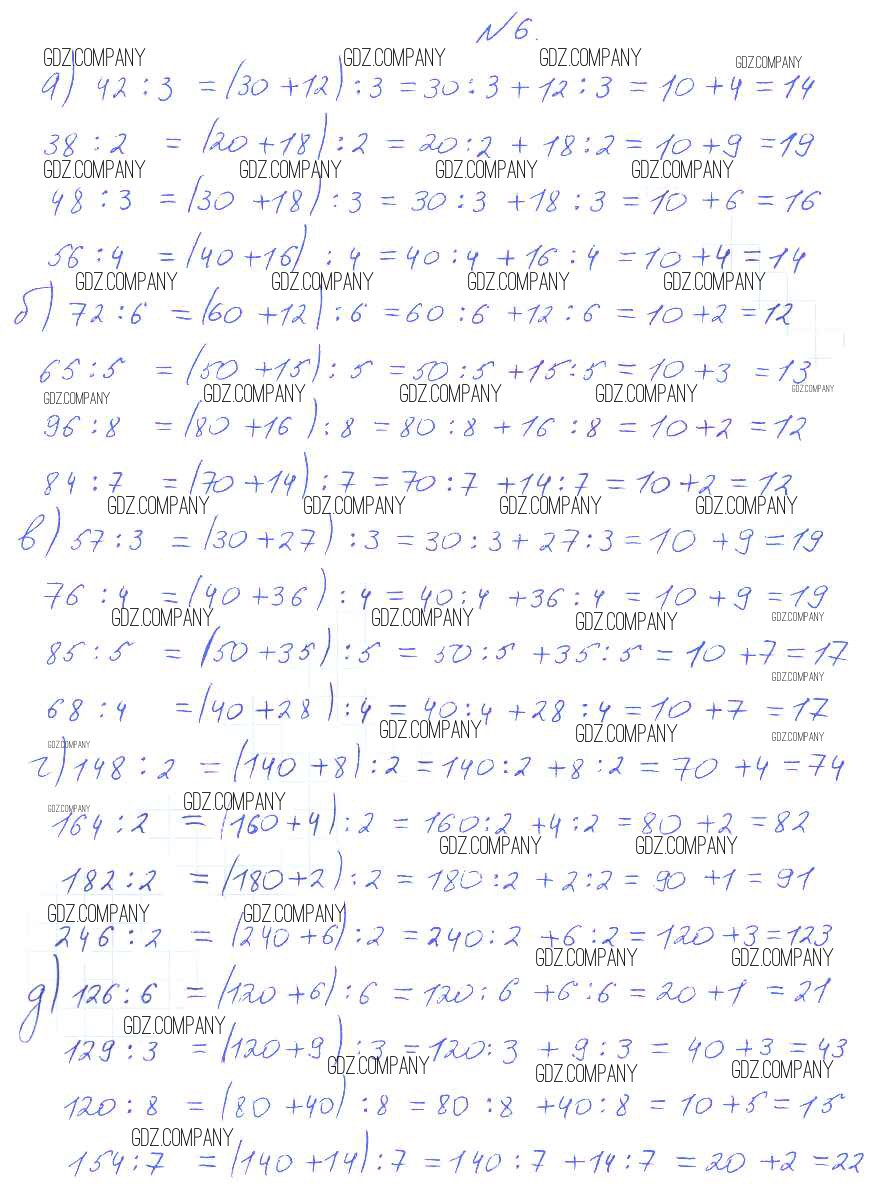 № 6.
GDZ.COMPANY GDZ.COMPANY GDZ.COMPANY GDZ.COMPANY
а) 42 : 3 = (30 + 12) : 3 = 30 : 3 + 12 : 3 = 10 + 4 = 14
38 : 2 = (20 + 18) : 2 = 20 : 2 + 18 : 2 = 10 + 9 = 19
GDZ.COMPANY GDZ.COMPANY GDZ.COMPANY GDZ.COMPANY
48 : 3 = (30 + 18) : 3 = 30 : 3 + 18 : 3 = 10 + 6 = 16
56 : 4 = (40 + 16) : 4 = 40 : 4 + 16 : 4 = 10 + 4 = 14
GDZ.COMPANY GDZ.COMPANY GDZ.COMPANY GDZ.COMPANY
б) 72 : 6 = (60 + 12) : 6 = 60 : 6 + 12 : 6 = 10 + 2 = 12
65 : 5 = (50 + 15) : 5 = 50 : 5 + 15 : 5 = 10 + 3 = 13
GDZ.COMPANY GDZ.COMPANY GDZ.COMPANY GDZ.COMPANY GDZ.COMPANY
96 : 8 = (80 + 16) : 8 = 80 : 8 + 16 : 8 = 10 + 2 = 12
84 : 7 = (70 + 14) : 7 = 70 : 7 + 14 : 7 = 10 + 2 = 12
GDZ.COMPANY GDZ.COMPANY GDZ.COMPANY GDZ.COMPANY
в) 57 : 3 = (30 + 27) : 3 = 30 : 3 + 27 : 3 = 10 + 9 = 19
76 : 4 = (40 + 36) : 4 = 40 : 4 + 36 : 4 = 10 + 9 = 19
GDZ.COMPANY GDZ.COMPANY GDZ.COMPANY GDZ.COMPANY
85 : 5 = (50 + 35) : 5 = 50 : 5 + 35 : 5 = 10 + 7 = 17
GDZ.COMPANY
68 : 4 = (40 + 28) : 4 = 40 : 4 + 28 : 4 = 10 + 7 = 17
GDZ.COMPANY GDZ.COMPANY GDZ.COMPANY GDZ.COMPANY
г) 148 : 2 = (140 + 8) : 2 = 140 : 2 + 8 : 2 = 70 + 4 = 74
GDZ.COMPANY GDZ.COMPANY
164 : 2 = (160 + 4) : 2 = 160 : 2 + 4 : 2 = 80 + 2 = 82
GDZ.COMPANY GDZ.COMPANY
182 : 2 = (180 + 2) : 2 = 180 : 2 + 2 : 2 = 90 + 1 = 91
GDZ.COMPANY GDZ.COMPANY
246 : 2 = (240 + 6) : 2 = 240 : 2 + 6 : 2 = 120 + 3 = 123
GDZ.COMPANY GDZ.COMPANY
д) 126 : 6 = (120 + 6) : 6 = 120 : 6 + 6 : 6 = 20 + 1 = 21
GDZ.COMPANY
129 : 3 = (120 + 9) : 3 = 120 : 3 + 9 : 3 = 40 + 3 = 43
GDZ.COMPANY GDZ.COMPANY GDZ.COMPANY
120 : 8 = (80 + 40) : 8 = 80 : 8 + 40 : 8 = 10 + 5 = 15
GDZ.COMPANY
154 : 7 = (140 + 14) : 7 = 140 : 7 + 14 : 7 = 20 + 2 = 22